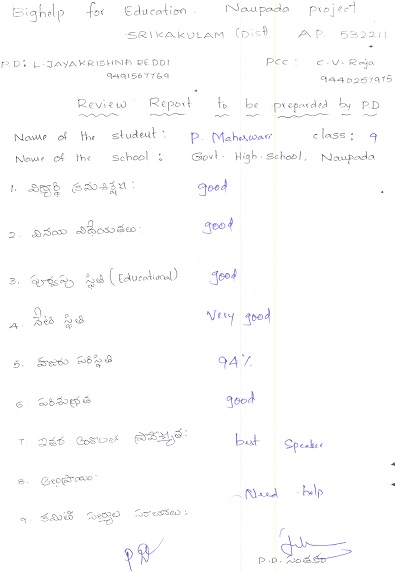 Bighelp for Education. Naupada project
SRIKAKULAM (Dist) A.P 532211
P.D: L. JAYAKRISHNA REDDI PCC: C.V. Raja
9491567769 9440257975
Review Report to be preparded by PD
Name of the student: P. Maheswari class: 9
Name of the school: Govt. High. School, Naupada
1. విద్యార్థి క్రమశిక్షణ: good
2. వినయ విధేయతలు: good
3. పూర్వపు స్థితి (Educational) good
4. నేటి స్థితి Very good
5. హాజరు పరిస్థితి 94%
6. పరిశుభ్రత good
7. ఇతర అంశాలలో ప్రావీణ్యత: best Speaker
8. అభిప్రాయం:
Need help
9. కమిటీ సభ్యుల సంతకాలు:
P.D. సంతకం